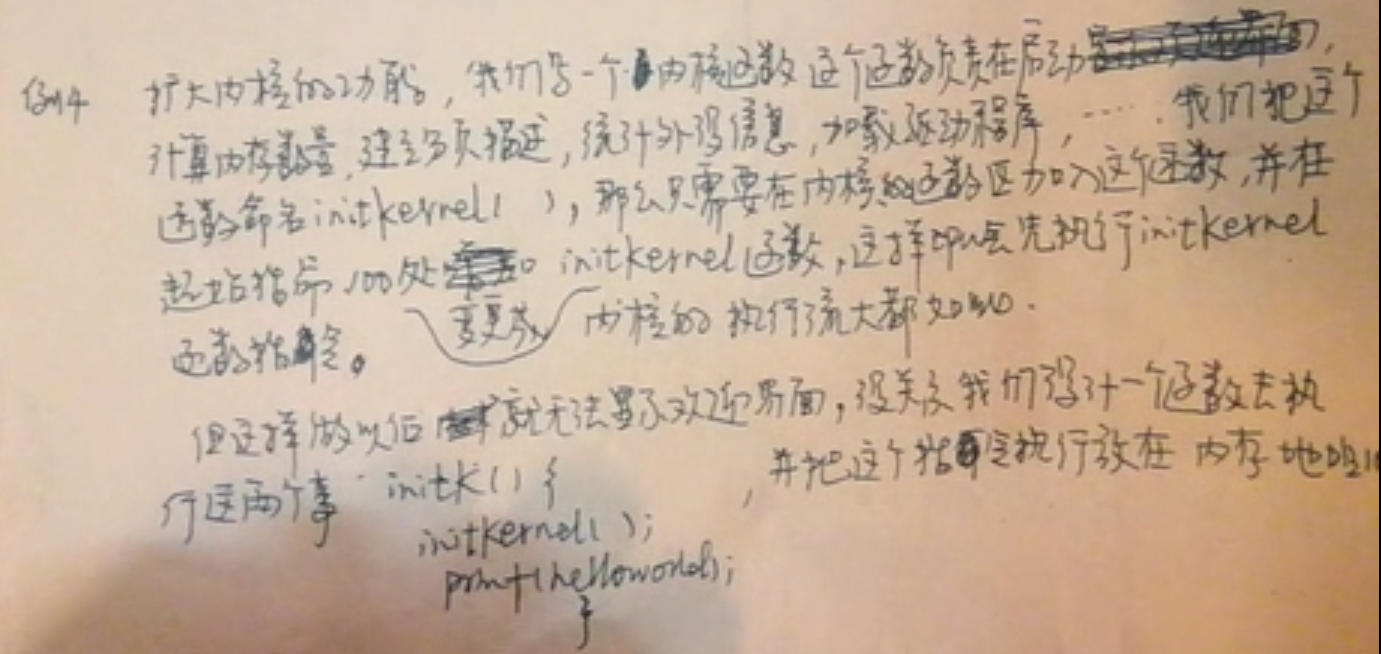 例4 扩大内核的功能，我们写一个内核函数 这个函数负责在启动时，
计算内存数量，建立分页描述，统计外设信息，加载驱动程序，…… 我们把这个
函数命名initkernel( )，那么只需要在内核的函数区加入这个函数，并在
起始指命100处变更成 initkernel函数，这样即会先执行initkernel
函数指令。 内核的执行流大都如此.
但这样做以后就无法显示欢迎界面，没关系 我们设计一个函数去执
行这两个事 initk() { ，并把这个指令执行放在 内存地址
initkernel( );
print(helloworld);
}